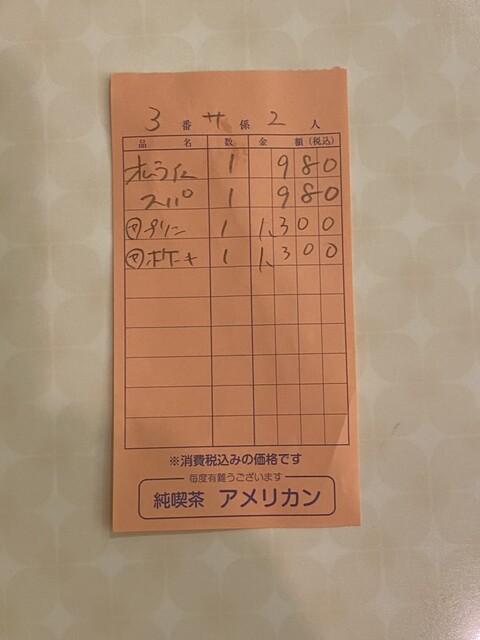 3 番 サ 係 2 人
品 名 数 金 額 (税込)
オムライス 1 980
スパ 1 980
㋳プリン 1 1,300
㋳ホケーキ 1 1,300
※消費税込みの価格です
毎度有難うございます
純喫茶 アメリカン